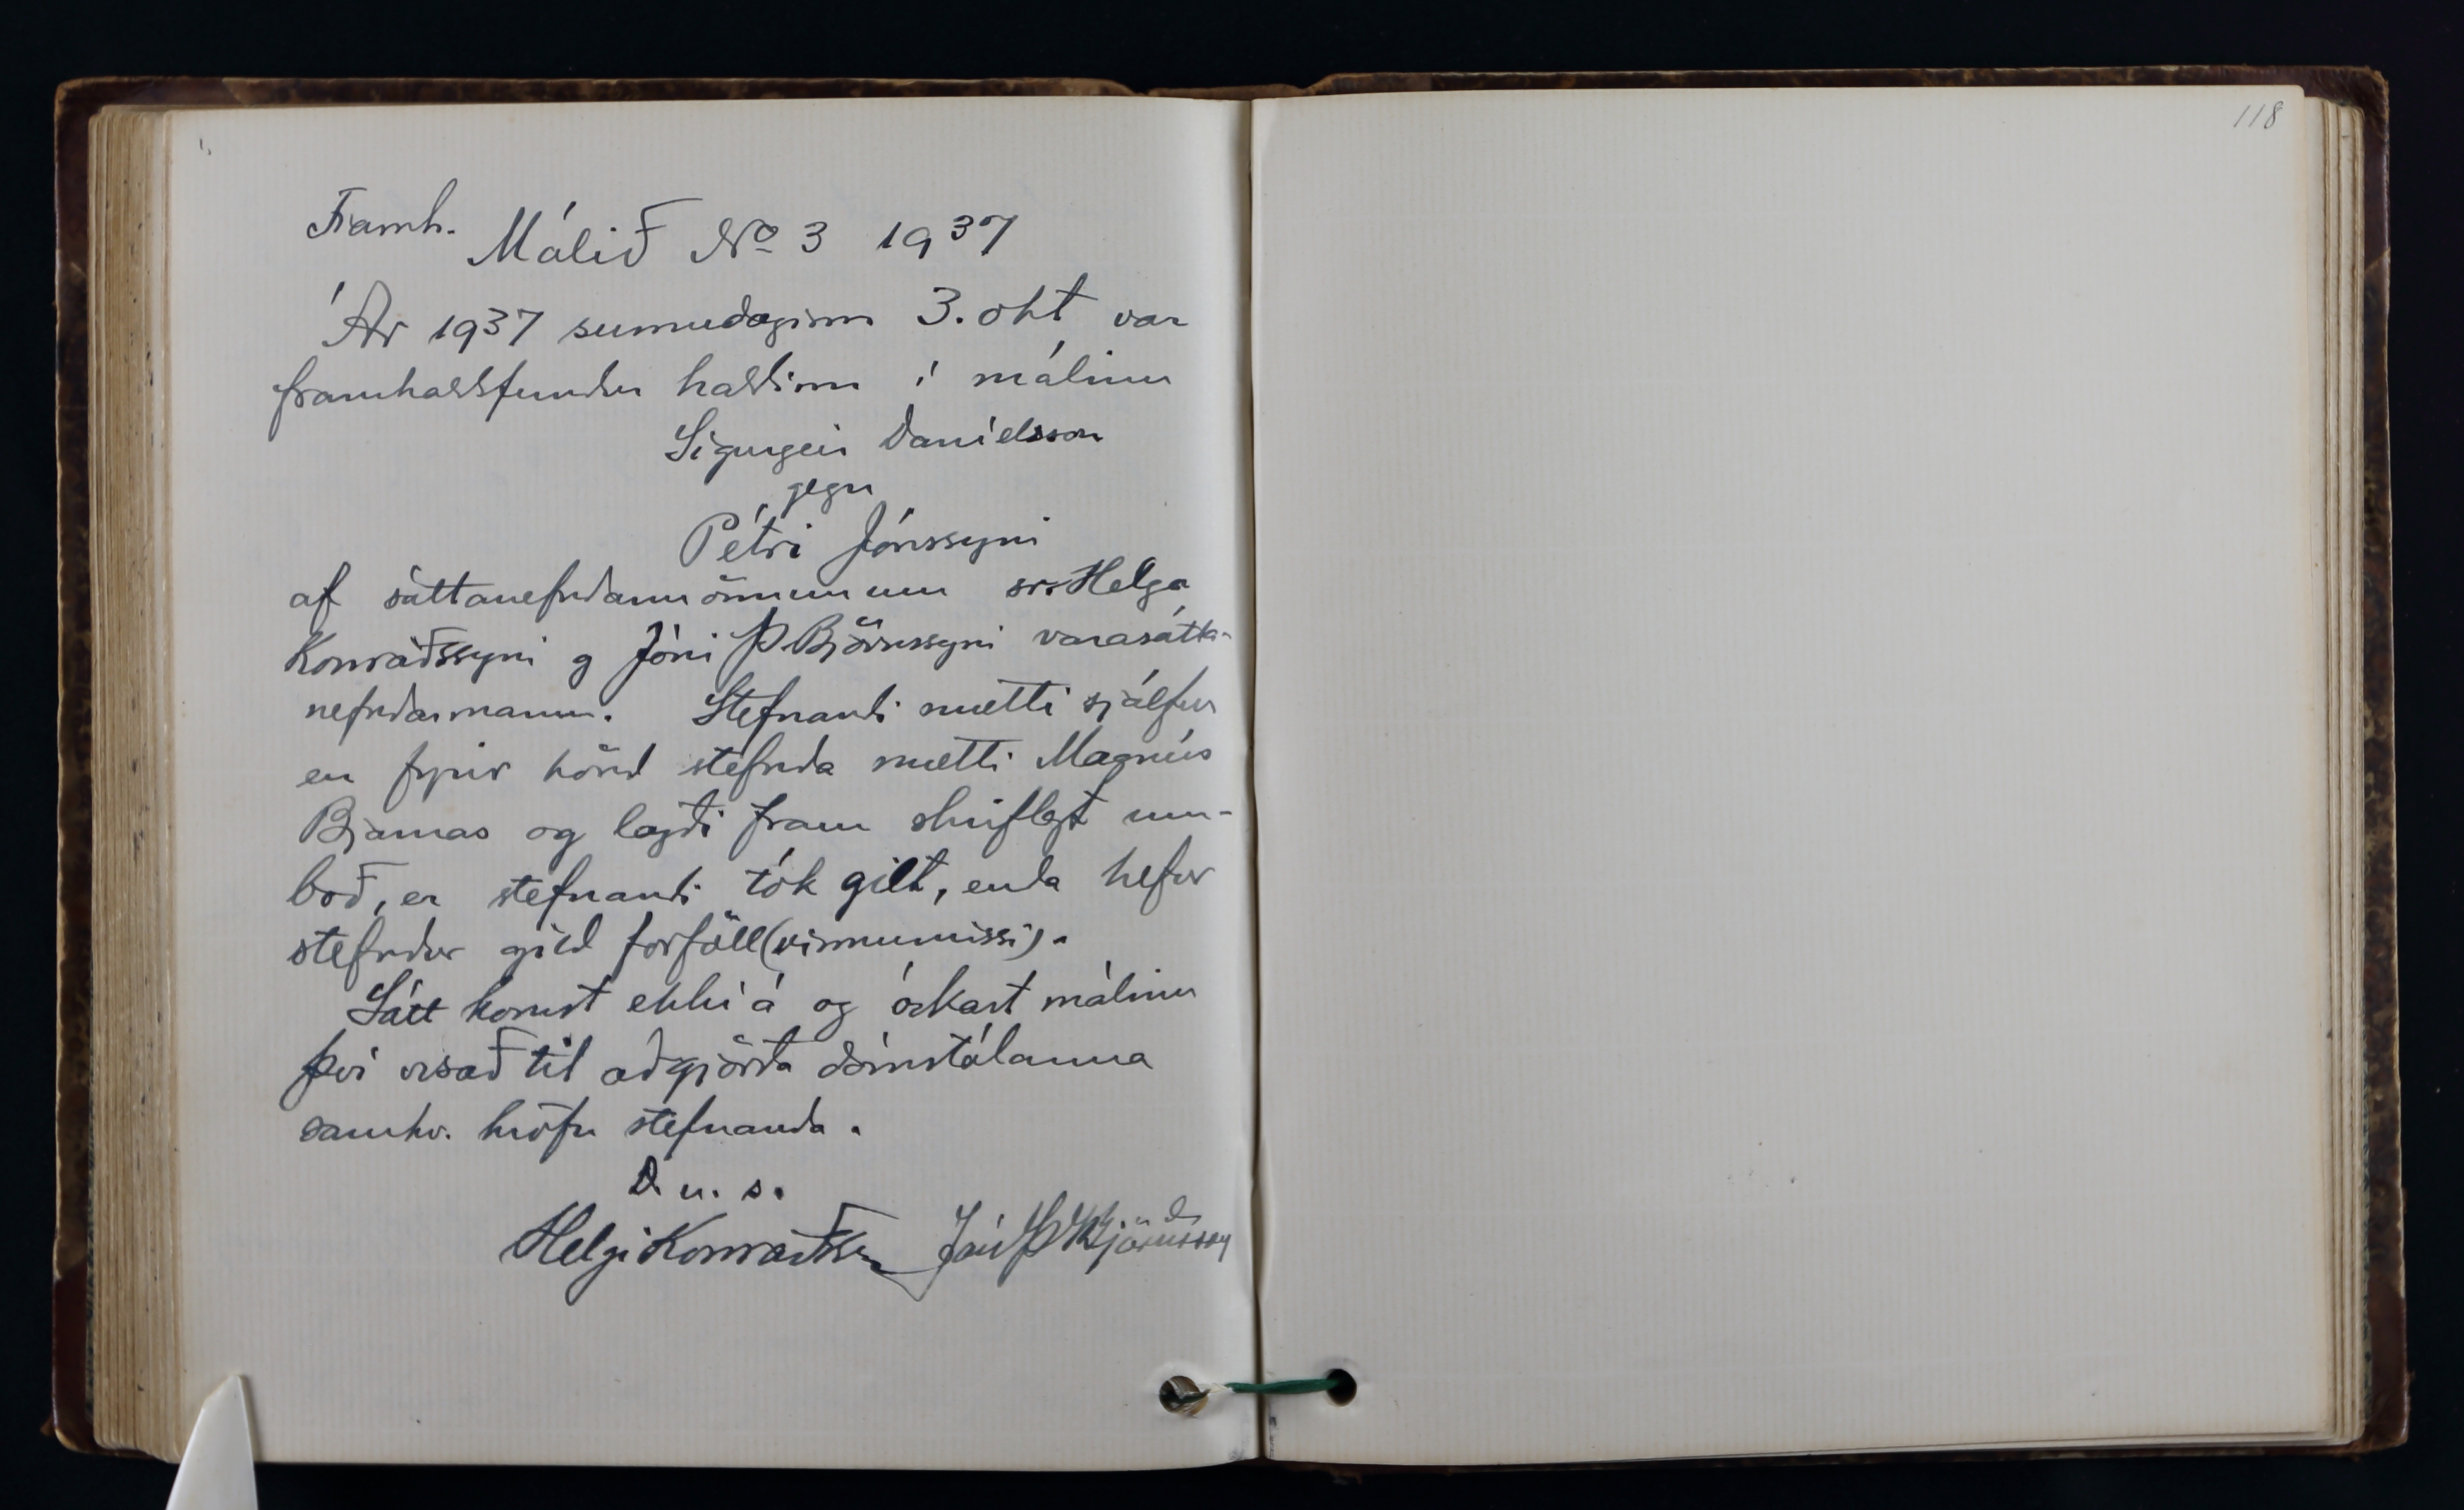 Framh. Málið No 3 1937
Ár 1937 sunnudaginn 3. okt var
framhaldsfundur haldinn í málinu
Sigurgeir Daníelsson
gegn
Pétri Jónssyni
af sáttanefndarmönnunum sr. Helga
Konráðssyni og Jóni Þ Björnssyni varasátta-
nefndarmanni. Stefnandi mætti sjálfur
en fyrir hönd stefnda mætti Magnús
Bjarnas og lagði fram skriflegt um-
boð, er stefnandi tók gilt, enda hefur
stefndur gild forföll (vinnumissi).
Sátt komst ekki á og óskast málinu
því vísað til aðgjörða dómstólanna
samkv. kröfu stefnanda.
D. u. s.
Helgi Konráðsson Jón Þ Björnsson
118